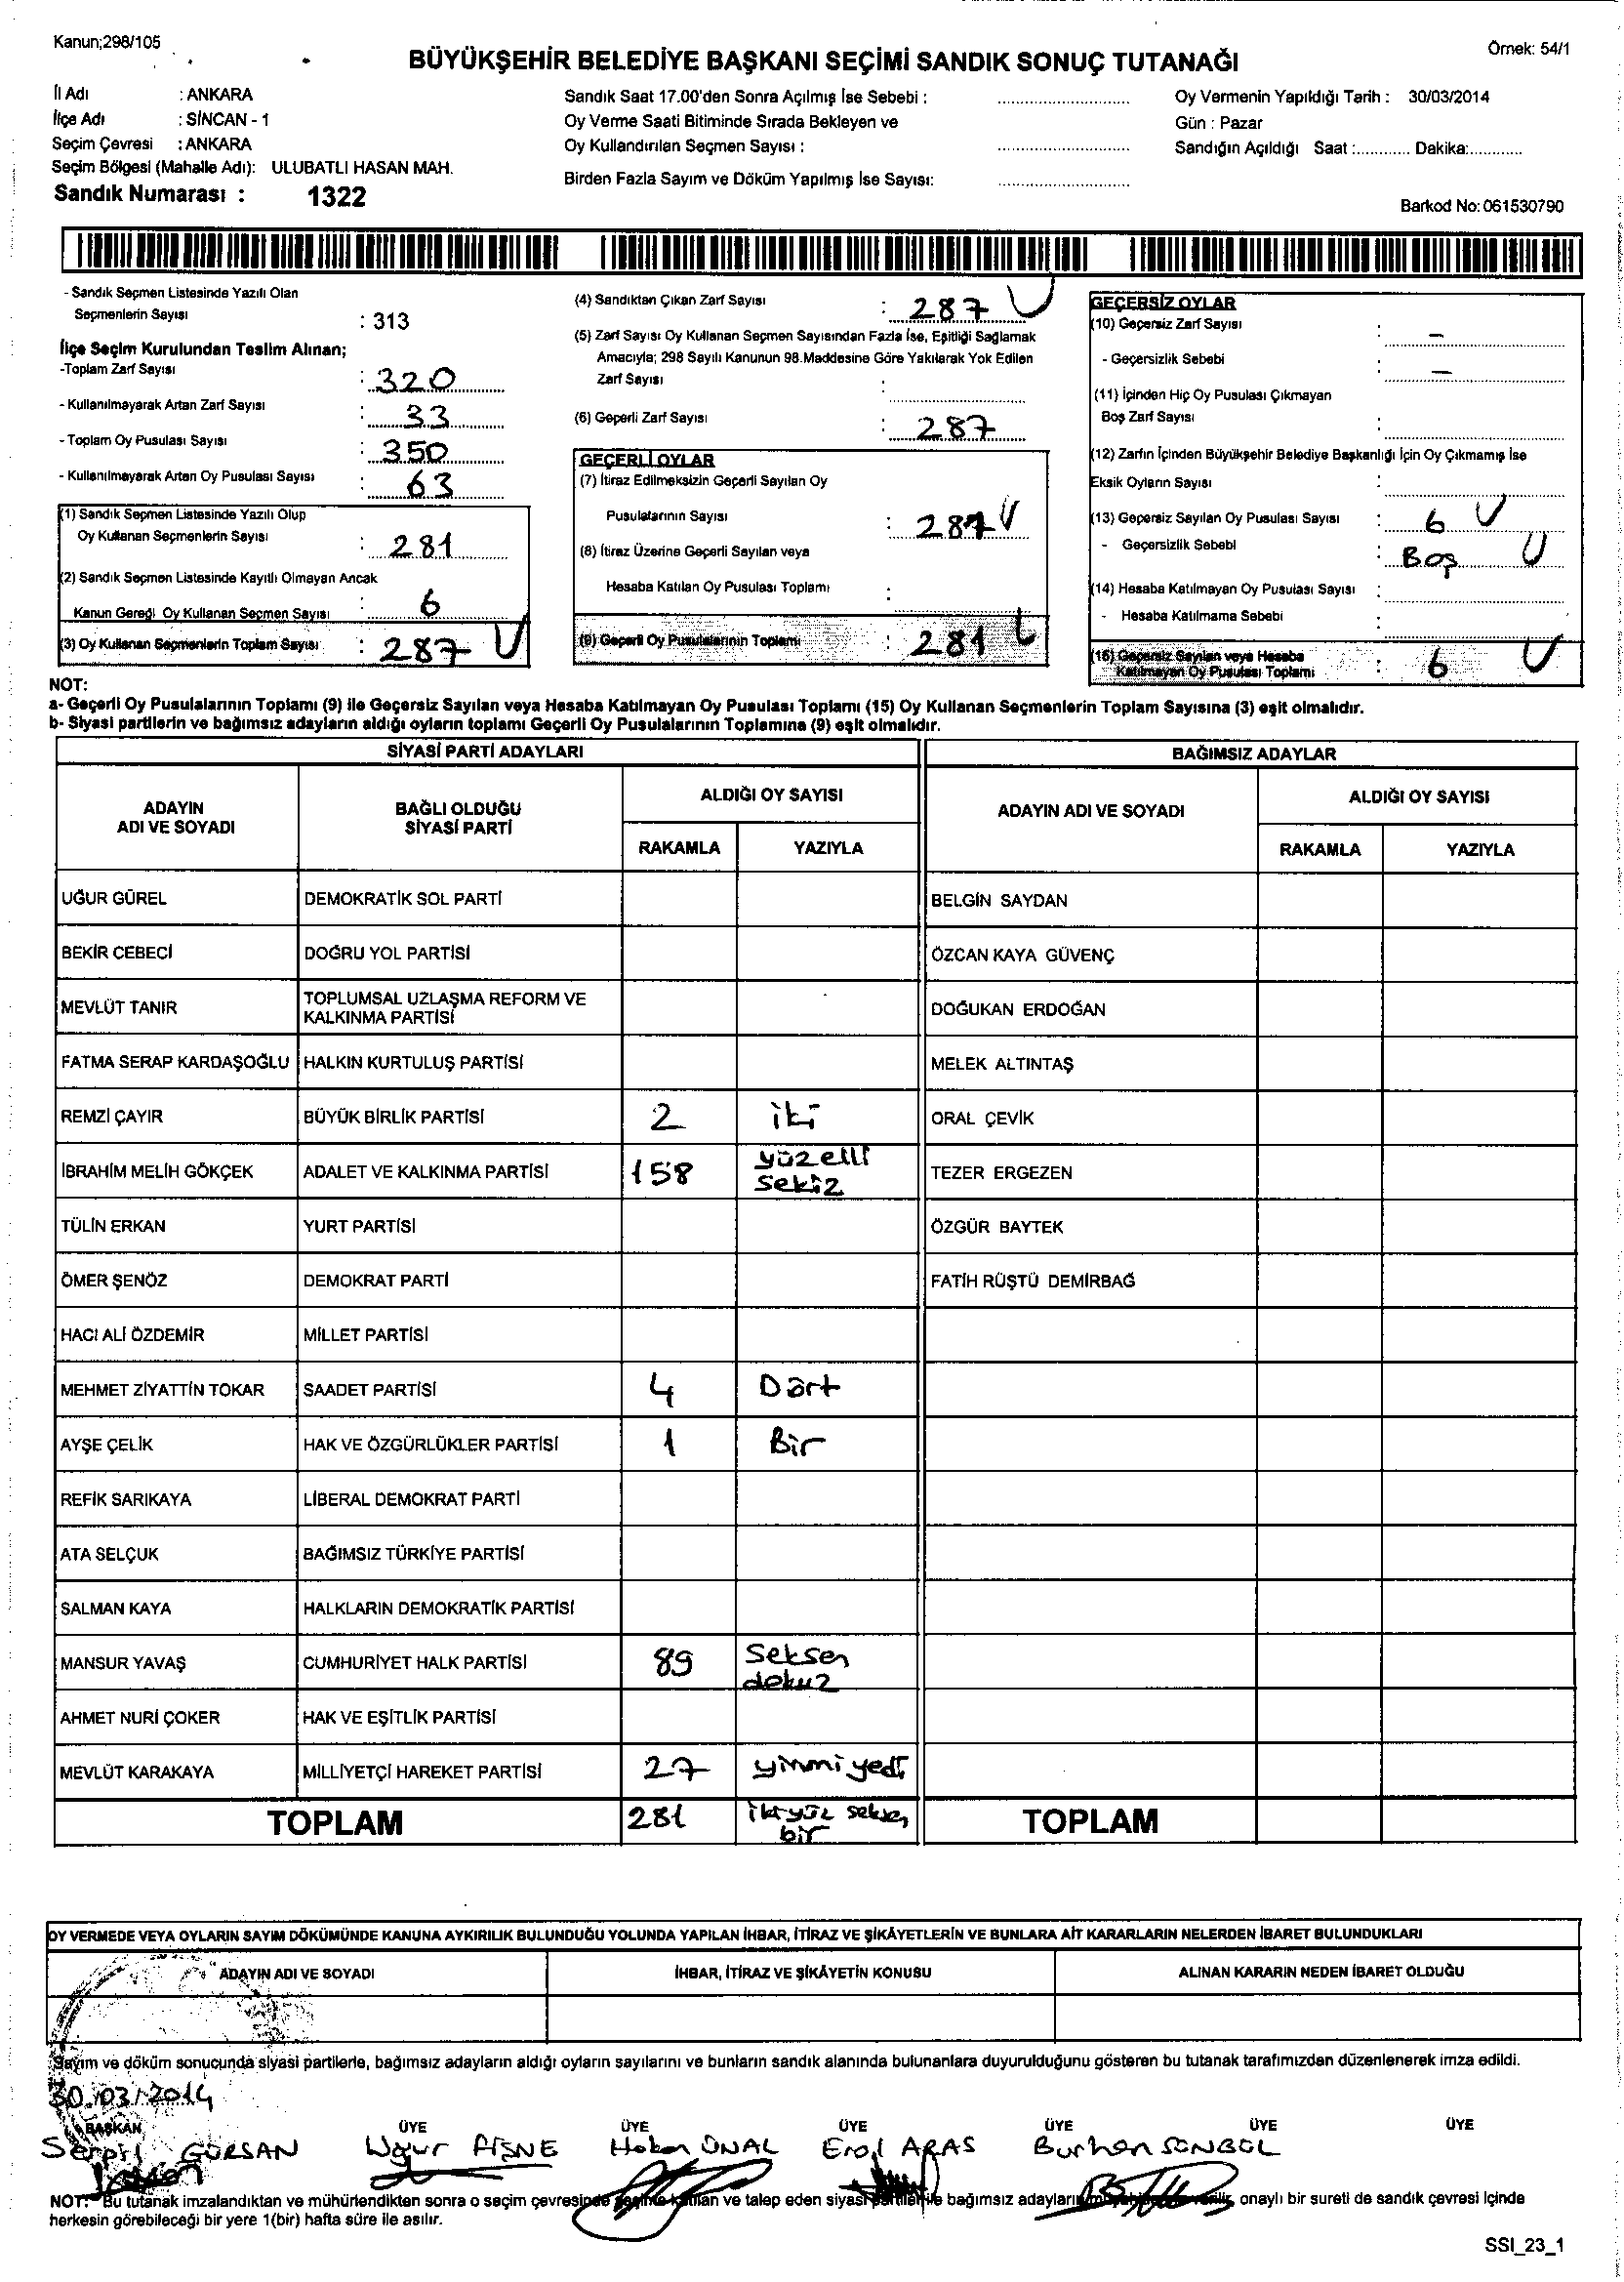 Kanun;298/105
Örnek: 54/1
BÜYÜKŞEHİR BELEDİYE BAŞKANI SEÇİMİ SANDIK SONUÇ TUTANAĞI
İl Adı : ANKARA
İlçe Adı : SİNCAN - 1
Seçim Çevresi : ANKARA
Seçim Bölgesi (Mahalle Adı): ULUBATLI HASAN MAH.
Sandık Numarası : 1322
Sandık Saat 17.00'den Sonra Açılmış İse Sebebi :
Oy Verme Saati Bitiminde Sırada Bekleyen ve
Oy Kullandırılan Seçmen Sayısı :
Birden Fazla Sayım ve Döküm Yapılmış İse Sayısı:
Oy Vermenin Yapıldığı Tarih : 30/03/2014
Gün : Pazar
Sandığın Açıldığı Saat :............ Dakika:............
Barkod No: 061530790
- Sandık Seçmen Listesinde Yazılı Olan
Seçmenlerin Sayısı : 313
İlçe Seçim Kurulundan Teslim Alınan;
-Toplam Zarf Sayısı : 320
- Kullanılmayarak Artan Zarf Sayısı : 33
- Toplam Oy Pusulası Sayısı : 350
- Kullanılmayarak Artan Oy Pusulası Sayısı : 63
(1) Sandık Seçmen Listesinde Yazılı Olup
Oy Kullanan Seçmenlerin Sayısı : 281
(2) Sandık Seçmen Listesinde Kayıtlı Olmayan Ancak
Kanun Gereği Oy Kullanan Seçmen Sayısı : 6
(3) Oy Kullanan Seçmenlerin Toplam Sayısı : 287
(4) Sandıktan Çıkan Zarf Sayısı : 287
(5) Zarf Sayısı Oy Kullanan Seçmen Sayısından Fazla İse, Eşitliği Sağlamak
Amacıyla; 298 Sayılı Kanunun 98.Maddesine Göre Yakılarak Yok Edilen
Zarf Sayısı :
(6) Geçerli Zarf Sayısı : 287
GEÇERLİ OYLAR
(7) İtiraz Edilmeksizin Geçerli Sayılan Oy
Pusulalarının Sayısı : 281
(8) İtiraz Üzerine Geçerli Sayılan veya
Hesaba Katılan Oy Pusulası Toplamı :
(9) Geçerli Oy Pusulalarının Toplamı : 281
GEÇERSİZ OYLAR
(10) Geçersiz Zarf Sayısı : -
- Geçersizlik Sebebi : -
(11) İçinden Hiç Oy Pusulası Çıkmayan
Boş Zarf Sayısı :
(12) Zarfın İçinden Büyükşehir Belediye Başkanlığı İçin Oy Çıkmamış İse
Eksik Oyların Sayısı :
(13) Geçersiz Sayılan Oy Pusulası Sayısı : 6
- Geçersizlik Sebebi : Boş
(14) Hesaba Katılmayan Oy Pusulası Sayısı :
- Hesaba Katılmama Sebebi :
(15) Geçersiz Sayılan veya Hesaba
Katılmayan Oy Pusulası Toplamı : 6
NOT:
a- Geçerli Oy Pusulalarının Toplamı (9) ile Geçersiz Sayılan veya Hesaba Katılmayan Oy Pusulası Toplamı (15) Oy Kullanan Seçmenlerin Toplam Sayısına (3) eşit olmalıdır.
b- Siyasi partilerin ve bağımsız adayların aldığı oyların toplamı Geçerli Oy Pusulalarının Toplamına (9) eşit olmalıdır.
SİYASİ PARTİ ADAYLARI
BAĞIMSIZ ADAYLAR
ADAYIN ADI VE SOYADI
BAĞLI OLDUĞU SİYASİ PARTİ
ALDIĞI OY SAYISI
RAKAMLA YAZIYLA
ADAYIN ADI VE SOYADI
ALDIĞI OY SAYISI
RAKAMLA YAZIYLA
UĞUR GÜREL DEMOKRATİK SOL PARTİ BELGİN SAYDAN
BEKİR CEBECİ DOĞRU YOL PARTİSİ ÖZCAN KAYA GÜVENÇ
MEVLÜT TANIR TOPLUMSAL UZLAŞMA REFORM VE KALKINMA PARTİSİ DOĞUKAN ERDOĞAN
FATMA SERAP KARDAŞOĞLU HALKIN KURTULUŞ PARTİSİ MELEK ALTINTAŞ
REMZİ ÇAYIR BÜYÜK BİRLİK PARTİSİ 2 iki ORAL ÇEVİK
İBRAHİM MELİH GÖKÇEK ADALET VE KALKINMA PARTİSİ 158 yüzelli sekiz TEZER ERGEZEN
TÜLİN ERKAN YURT PARTİSİ ÖZGÜR BAYTEK
ÖMER ŞENÖZ DEMOKRAT PARTİ FATİH RÜŞTÜ DEMİRBAĞ
HACI ALİ ÖZDEMİR MİLLET PARTİSİ
MEHMET ZİYATTİN TOKAR SAADET PARTİSİ 4 Dört
AYŞE ÇELİK HAK VE ÖZGÜRLÜKLER PARTİSİ 1 Bir
REFİK SARIKAYA LİBERAL DEMOKRAT PARTİ
ATA SELÇUK BAĞIMSIZ TÜRKİYE PARTİSİ
SALMAN KAYA HALKLARIN DEMOKRATİK PARTİSİ
MANSUR YAVAŞ CUMHURİYET HALK PARTİSİ 89 Seksen dokuz
AHMET NURİ ÇOKER HAK VE EŞİTLİK PARTİSİ
MEVLÜT KARAKAYA MİLLİYETÇİ HAREKET PARTİSİ 27 yirmi yedi
TOPLAM 281 ikiyüz seksen bir TOPLAM
OY VERMEDE VEYA OYLARIN SAYIM DÖKÜMÜNDE KANUNA AYKIRILIK BULUNDUĞU YOLUNDA YAPILAN İHBAR, İTİRAZ VE ŞİKÂYETLERİN VE BUNLARA AİT KARARLARIN NELERDEN İBARET BULUNDUKLARI
ADAYIN ADI VE SOYADI
İHBAR, İTİRAZ VE ŞİKÂYETİN KONUSU
ALINAN KARARIN NEDEN İBARET OLDUĞU
Sayım ve döküm sonucunda siyasi partilerle, bağımsız adayların aldığı oyların sayılarını ve bunların sandık alanında bulunanlara duyurulduğunu gösteren bu tutanak tarafımızdan düzenlenerek imza edildi.
30.03.2014
BAŞKAN ÜYE ÜYE ÜYE ÜYE ÜYE ÜYE
Serpil GÜRSAN Uğur AİŞNE Hakan ÜNAL Erol ARAS Burhan SONBOL
NOT: Bu tutanak imzalandıktan ve mühürlendikten sonra o seçim çevresinde seçime katılan ve talep eden siyasi partiler ile bağımsız adayların onaylı bir sureti de sandık çevresi içinde
herkesin görebileceği bir yere 1(bir) hafta süre ile asılır.
SSI_23_1